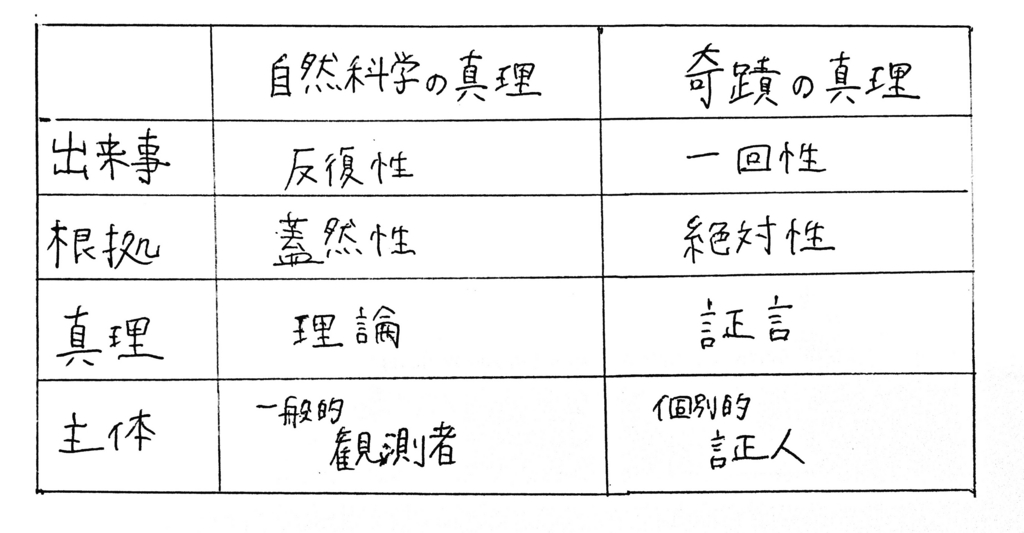 自然科学の真理 奇蹟の真理
出来事 反復性 一回性
根拠 蓋然性 絶対性
真理 理論 証言
主体 一般的 個別的
観測者 証人